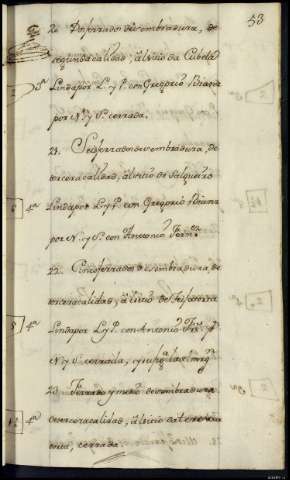 53
20. Dos ferrados de sembradura, de
segunda calidad, al sitio da Cubela
2 2ª Linda por L. y P. con Gregorio Biana
por N. y S. cerrada.
21. Seis ferrados de sembradura, de
tercera calidad, al sitio de Salgueiro
6 4ª Linda por L. y P. con Gregorio Biana
por N. y S. con Antonio Fern.z
22. Cinco ferrados de sembradura, de
tercera calidad, al sitio de
5 4ª Linda por L. y P. con Antonio
N. y S. cerrada, y su fig.ª la del marg.n
23. Ferrado y medio de sembradura
de tercera calidad, al sitio
4ª cerrada.